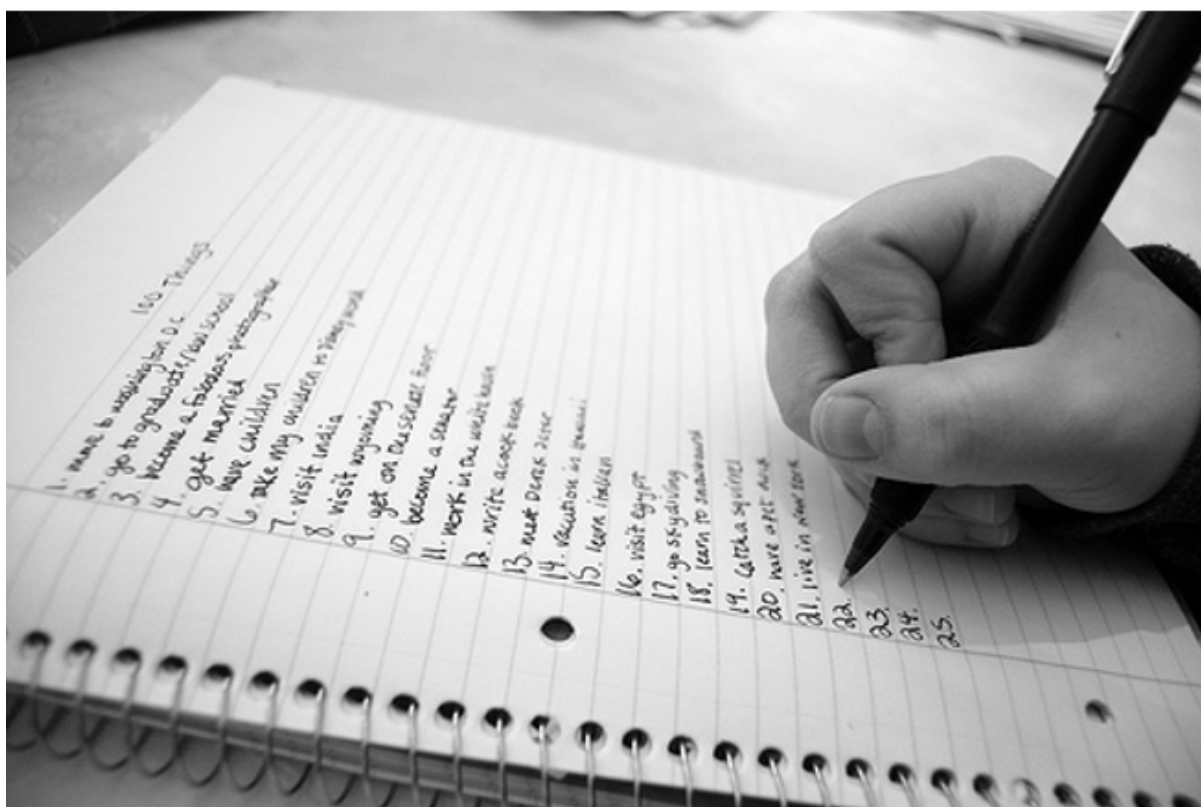 100 Things
1. move to washington D.C.
2. go to graduate/law school
3. become a fabulous photographer
4. get married
5. have children
6. take my children to disney world
7. visit India
8. visit wyoming
9. get on the senate floor
10. become a senator
11. work in the white house
12. write a cook book
13. meet Derek Jeter
14. vacation in
15. learn italian
16. visit egypt
17. go skydiving
18. learn to snowboard
19. catch a squirrel
20. have a pet
21. live in new york
22.
23.
24.
25.